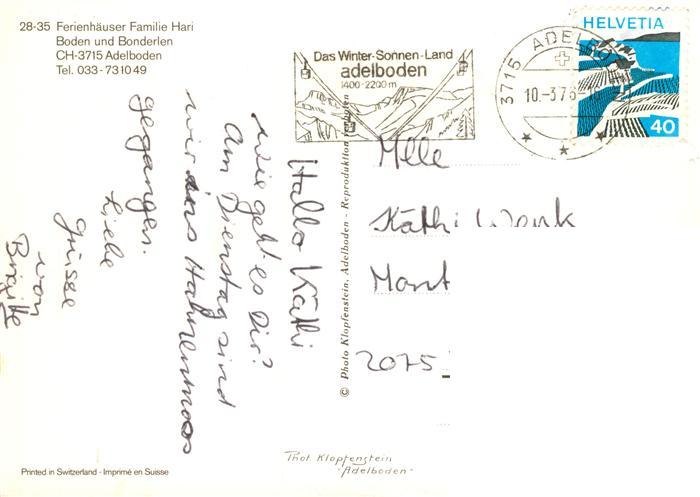 28-35 Ferienhäuser Familie Hari
Boden und Bonderlen
CH-3715 Adelboden
Tel. 033-731049
Das Winter-Sonnen-Land
adelboden
1400-2200 m
3715 ADELBO
10.-3.76-18
HELVETIA
40
Hallo Käthi
Wie geht es Dir?
Am Dienstag sind
wir ins Hahnenmoos
gegangen.
Liebe
Grüsse
von
Brigitte
© Photo Klopfenstein, Adelboden - Reproduktion verboten
Mlle
Käthi Wenk
Mont
2075
Phot. Klopfenstein
"Adelboden"
Printed in Switzerland - Imprimé en Suisse